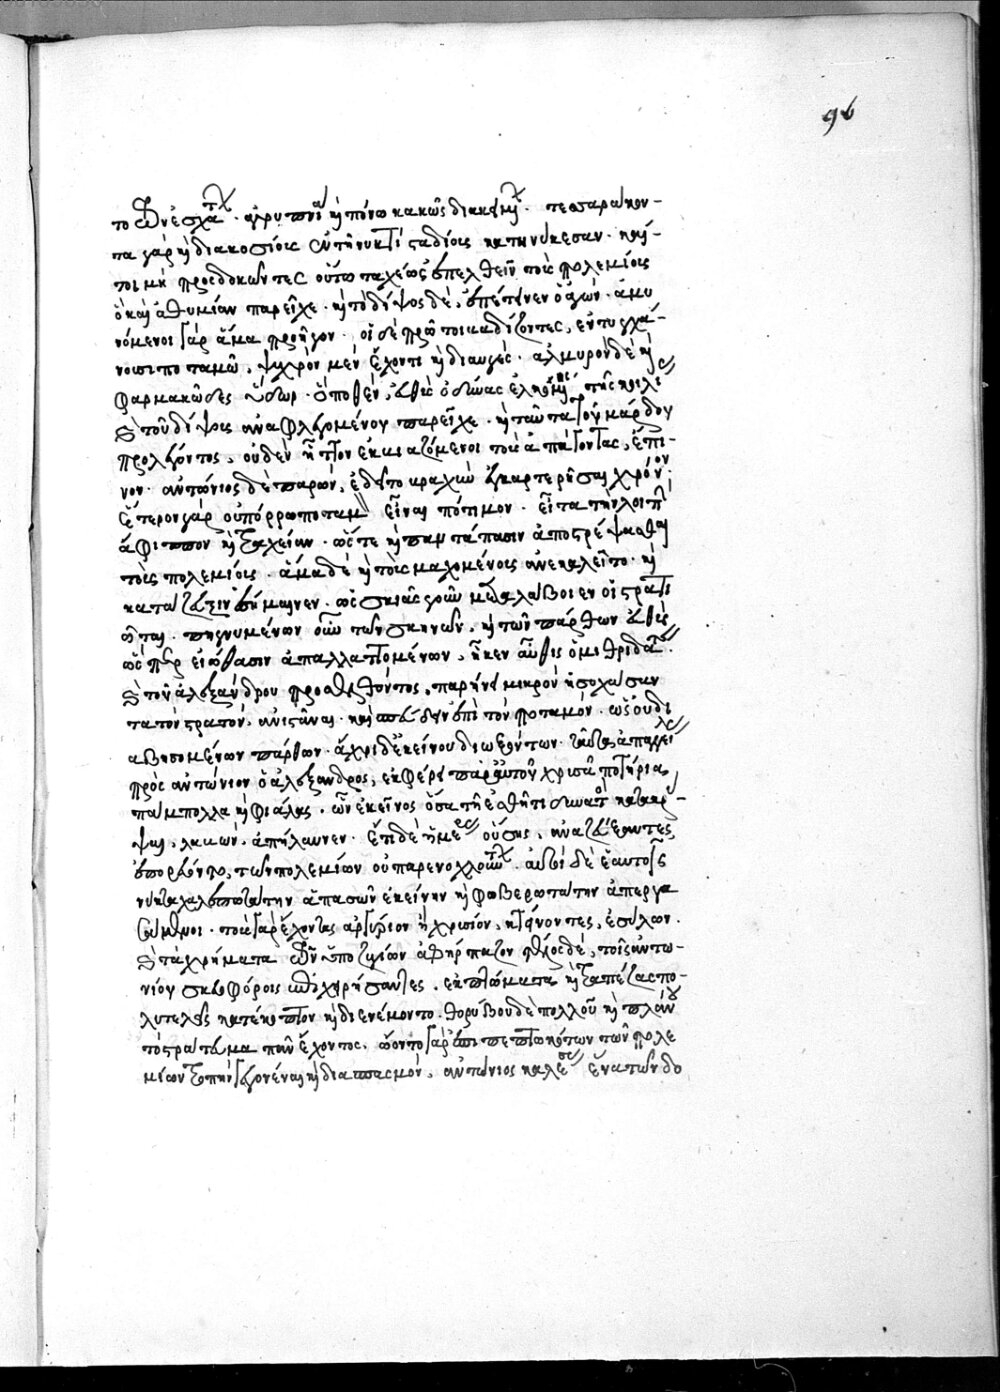 96
το τῶν ἐσχάτων. ἀγρυπνίᾳ καὶ πόνῳ κακῶς διακειμένων. τεσσαράκον-
τα γὰρ καὶ διακοσίους ἐν τῇ νυκτὶ σταδίους κατηνύκεσαν. καί-
τοι μὴ προσδοκῶντες οὕτω ταχέως ἐπελθεῖν τοὺς πολεμίους
ὃ καὶ ἀθυμίαν παρεῖχε. καὶ τὸ δίψος δὲ, ἐπέτεινεν ὁ ἀγών. ἀμυ
νόμενοι γὰρ ἅμα προῆγον. οἱ δὲ πρῶτοι βαδίζοντες, ἐντυγχά-
νουσι ποταμῷ, ψυχρὸν μὲν ἔχοντι καὶ διαυγές. ἁλμυρὸν δὲ καὶ
φαρμακῶδες ὕδωρ. ὃ ποθὲν, εὐθὺς ὀδύνας ἑλκομένης τῆς κοιλίας
καὶ τοῦ δίψους ἀναφλεγομένου παρεῖχε. καὶ ταῦτα τοῦ μάρδου
προλέγοντος, οὐδὲν ἧττον ἐκβιαζόμενοι τοὺς ἀπάγοντας, ἔπι-
νον. ἀντώνιος δὲ παρὼν, ἐδεῖτο βραχὺν ἐγκαρτερῆσαι χρόνον.
ἕτερον γὰρ οὐ πόρρω ποταμὸν εἶναι πότιμον. εἶτα τὴν λοιπὴν
ἄφιππον καὶ τραχεῖαν. ὥστε καὶ παντάπασιν ἀποστρέψασθαι
τοὺς πολεμίους. ἅμα δὲ καὶ τοὺς μαχομένους ἀνεκαλεῖτο. καὶ
κατάζευξιν ἐσήμαινεν. ὡς σκιᾶς γοῦν μεταλάβοιεν οἱ στρατι
ῶται. πηγνυμένων οὖν τῶν σκηνῶν, καὶ τῶν πάρθων εὐθὺς
ὥσπερ εἰώθασιν ἀπαλλαττομένων, ἧκεν αὖθις ὁ μιθριδάτης.
καὶ τοῦ ἀλεξάνδρου προσελθόντος, παρῄνει μικρὸν ἡσυχάσαν
τα τὸν στρατὸν, ἀνιστάναι. καὶ σπεύδειν ἐπὶ τὸν ποταμόν. ὡς οὐ δι
αβησομένων πάρθων. ἄχρι δὲ ἐκείνου διωξόντων. ταῦτα ἀπαγγείλας
πρὸς ἀντώνιον ὁ ἀλέξανδρος, ἐκφέρει παρ' αὐτοῦ χρυσᾶ ποτήρια
πάμπολλα καὶ φιάλας. ὧν ἐκεῖνος ὅσα τῇ ἐσθῆτι δυνατὸς κατακρύ-
ψαι, λαβὼν, ἀπήλαυνεν. ἔτι δὲ ἡμέρας οὔσης, ἀναζεύξαντες
ἐπορεύοντο, τῶν πολεμίων οὐ παρενοχλούντων. αὐτοὶ δὲ ἑαυτοῖς
νύκτα χαλεπωτάτην ἁπασῶν ἐκείνην καὶ φοβερωτάτην ἀπεργα
σάμενοι. τοὺς γὰρ ἔχοντας ἀργύριον ἢ χρυσίον, κτείνοντες, ἐσύλων.
καὶ τὰ χρήματα τῶν ὑποζυγίων ἀφήρπαζον τέλος δὲ, τοῖς ἀντω-
νίου σκευοφόροις ἐπιχειρήσαντες. ἐκπώματα καὶ τραπέζας πο-
λυτελεῖς κατέκοπτον καὶ διενέμοντο. θορύβου δὲ πολλοῦ καὶ πλάνου
τὸ στράτευμα πᾶν ἔχοντος. ᾤοντο γὰρ ἐπιπεπτωκότων τῶν πολε
μίων τροπὴν γεγονέναι καὶ διασπασμόν. ἀντώνιος καλέσας ἕνα τῶν δο